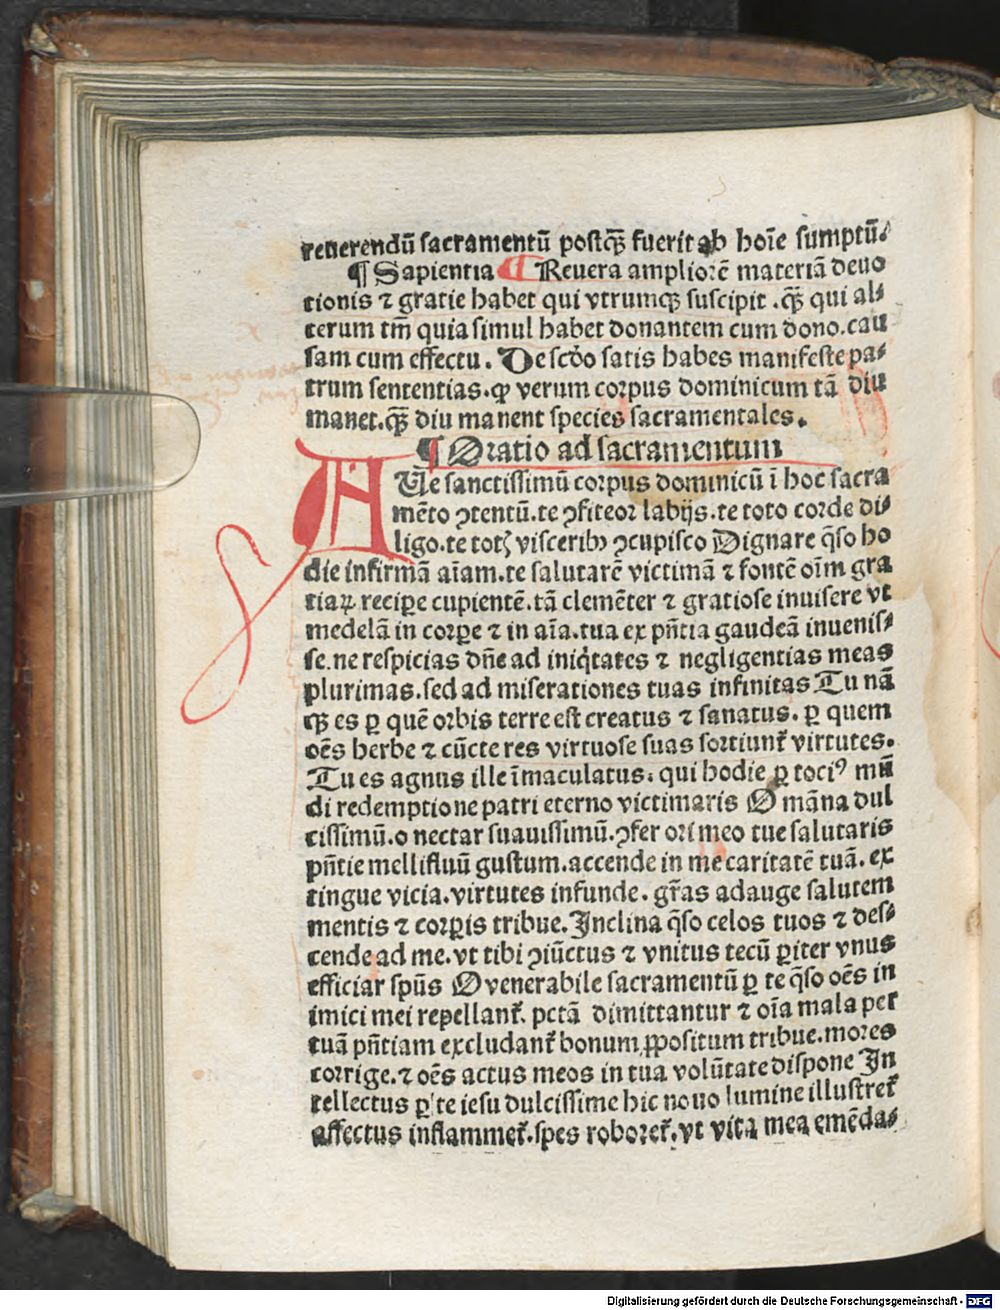 reuerendū sacramentū postqȝ fuerit ab hoīe sumptū.
¶ Sapientia ¶ Reuera ampliorē materiā deuo
tionis ⁊ gratie habet qui vtrumqȝ suscipit .qȝ qui al⸗
terum tm̄ quia simul habet donantem cum dono.cau
sam cum effectu. De scďo satis habes manifeste pa⸗
trum sententias.ꝙ verum corpus dominicum tā diu
manet.qȝ diu manent species sacramentales.
¶ Oratio ad sacramentum
AUe sanctissimū corpus dominicū ī hoc sacra
mēto ꝯtentū.te ꝯfiteor labijs.te toto corde di⸗
ligo.te totꝭ visceribꝰ ꝯcupisco Dignare q̄so ho
die infirmā aīam.te salutarē victimā ⁊ fontē oīm gra
tiaꝝ recipe cupientē.tā clemēter ⁊ gratiose inuisere vt
medelā in corpe ⁊ in aīa.tua ex pn̄tia gaudeā inuenis⸗
se.ne respicias dn̄e ad iniq̇tates ⁊ negligentias meas
plurimas.sed ad miserationes tuas infinitas Tu nā
qȝ es ꝑ quē orbis terre est creatus ⁊ sanatus. ꝑ quem
oēs herbe ⁊ cūcte res virtuose suas sortiunt᷑ virtutes.
Tu es agnus ille īmaculatus. qui hodie ꝑ tociꝰ mū
di redemptione patri eterno victimaris O māna dul
cissimū.o nectar suauissimū.ꝯfer ori meo tue salutaris
pn̄tie mellifluū gustum.accende in me caritatē tuā. ex
tingue vicia.virtutes infunde. gr̄as adauge salutem
mentis ⁊ corꝑis tribue. Inclina q̄so celos tuos ⁊ des⸗
cende ad me. vt tibi ꝯiūctus ⁊ vnitus tecū ꝑiter vnus
efficiar spūs O venerabile sacramentū ꝑ te q̄so oēs in
imici mei repellant᷑. pctā dimittantur ⁊ oīa mala per
tuā pn̄tiam excludant᷑ bonum ꝓpositum tribue.mores
corrige.⁊ oēs actus meos in tua volūtate dispone In
tellectus ꝑ te iesu dulcissime hic nouo lumine illustret᷑
affectus inflammet᷑.spes roboret᷑.vt vita mea emēda⸗
Digitalisierung gefördert durch die Deutsche Forschungsgemeinschaft - DFG